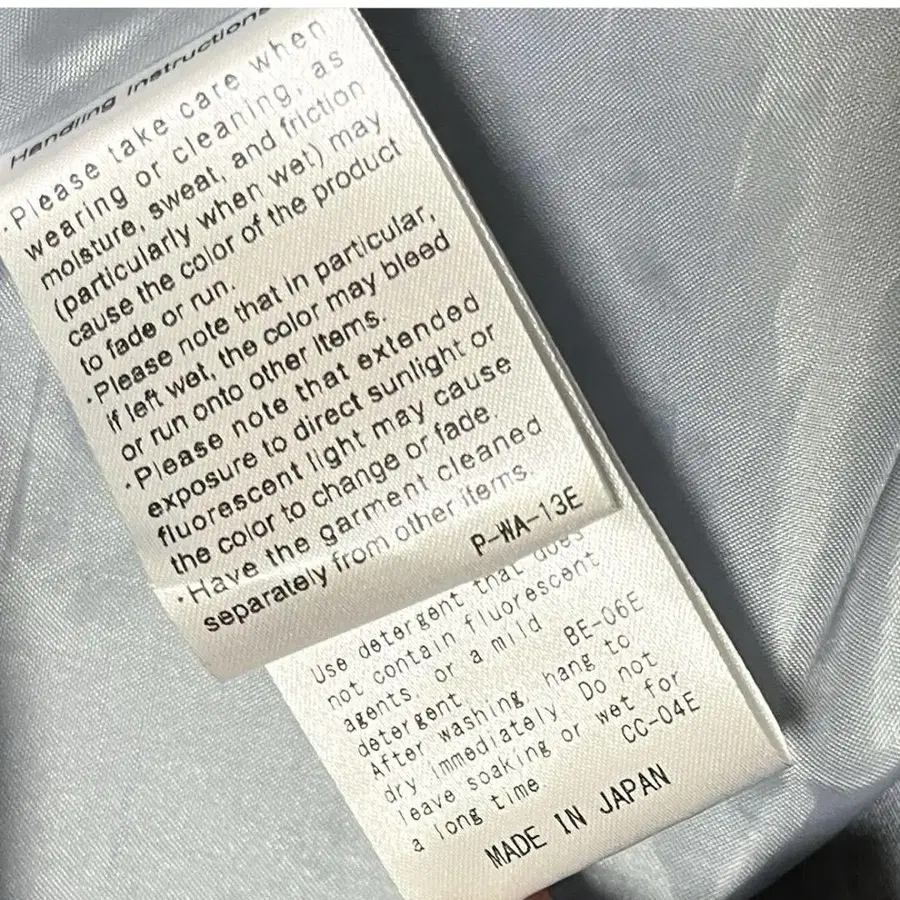 Handling instructions
·Please take care when
wearing or cleaning, as
moisture, sweat, and friction
(particularly when wet) may
cause the color of the product
to fade or run.
·Please note that in particular,
if left wet, the color may bleed
or run onto other items.
·Please note that extended
exposure to direct sunlight or
fluorescent light may cause
the color to change or fade.
·Have the garment cleaned
separately from other items.
P-WA-13E
Use detergent that does
not contain fluorescent
agents, or a mild
detergent.
BE-06E
After washing, hang to
dry immediately. Do not
leave soaking or wet for
a long time.
CC-04E
MADE IN JAPAN